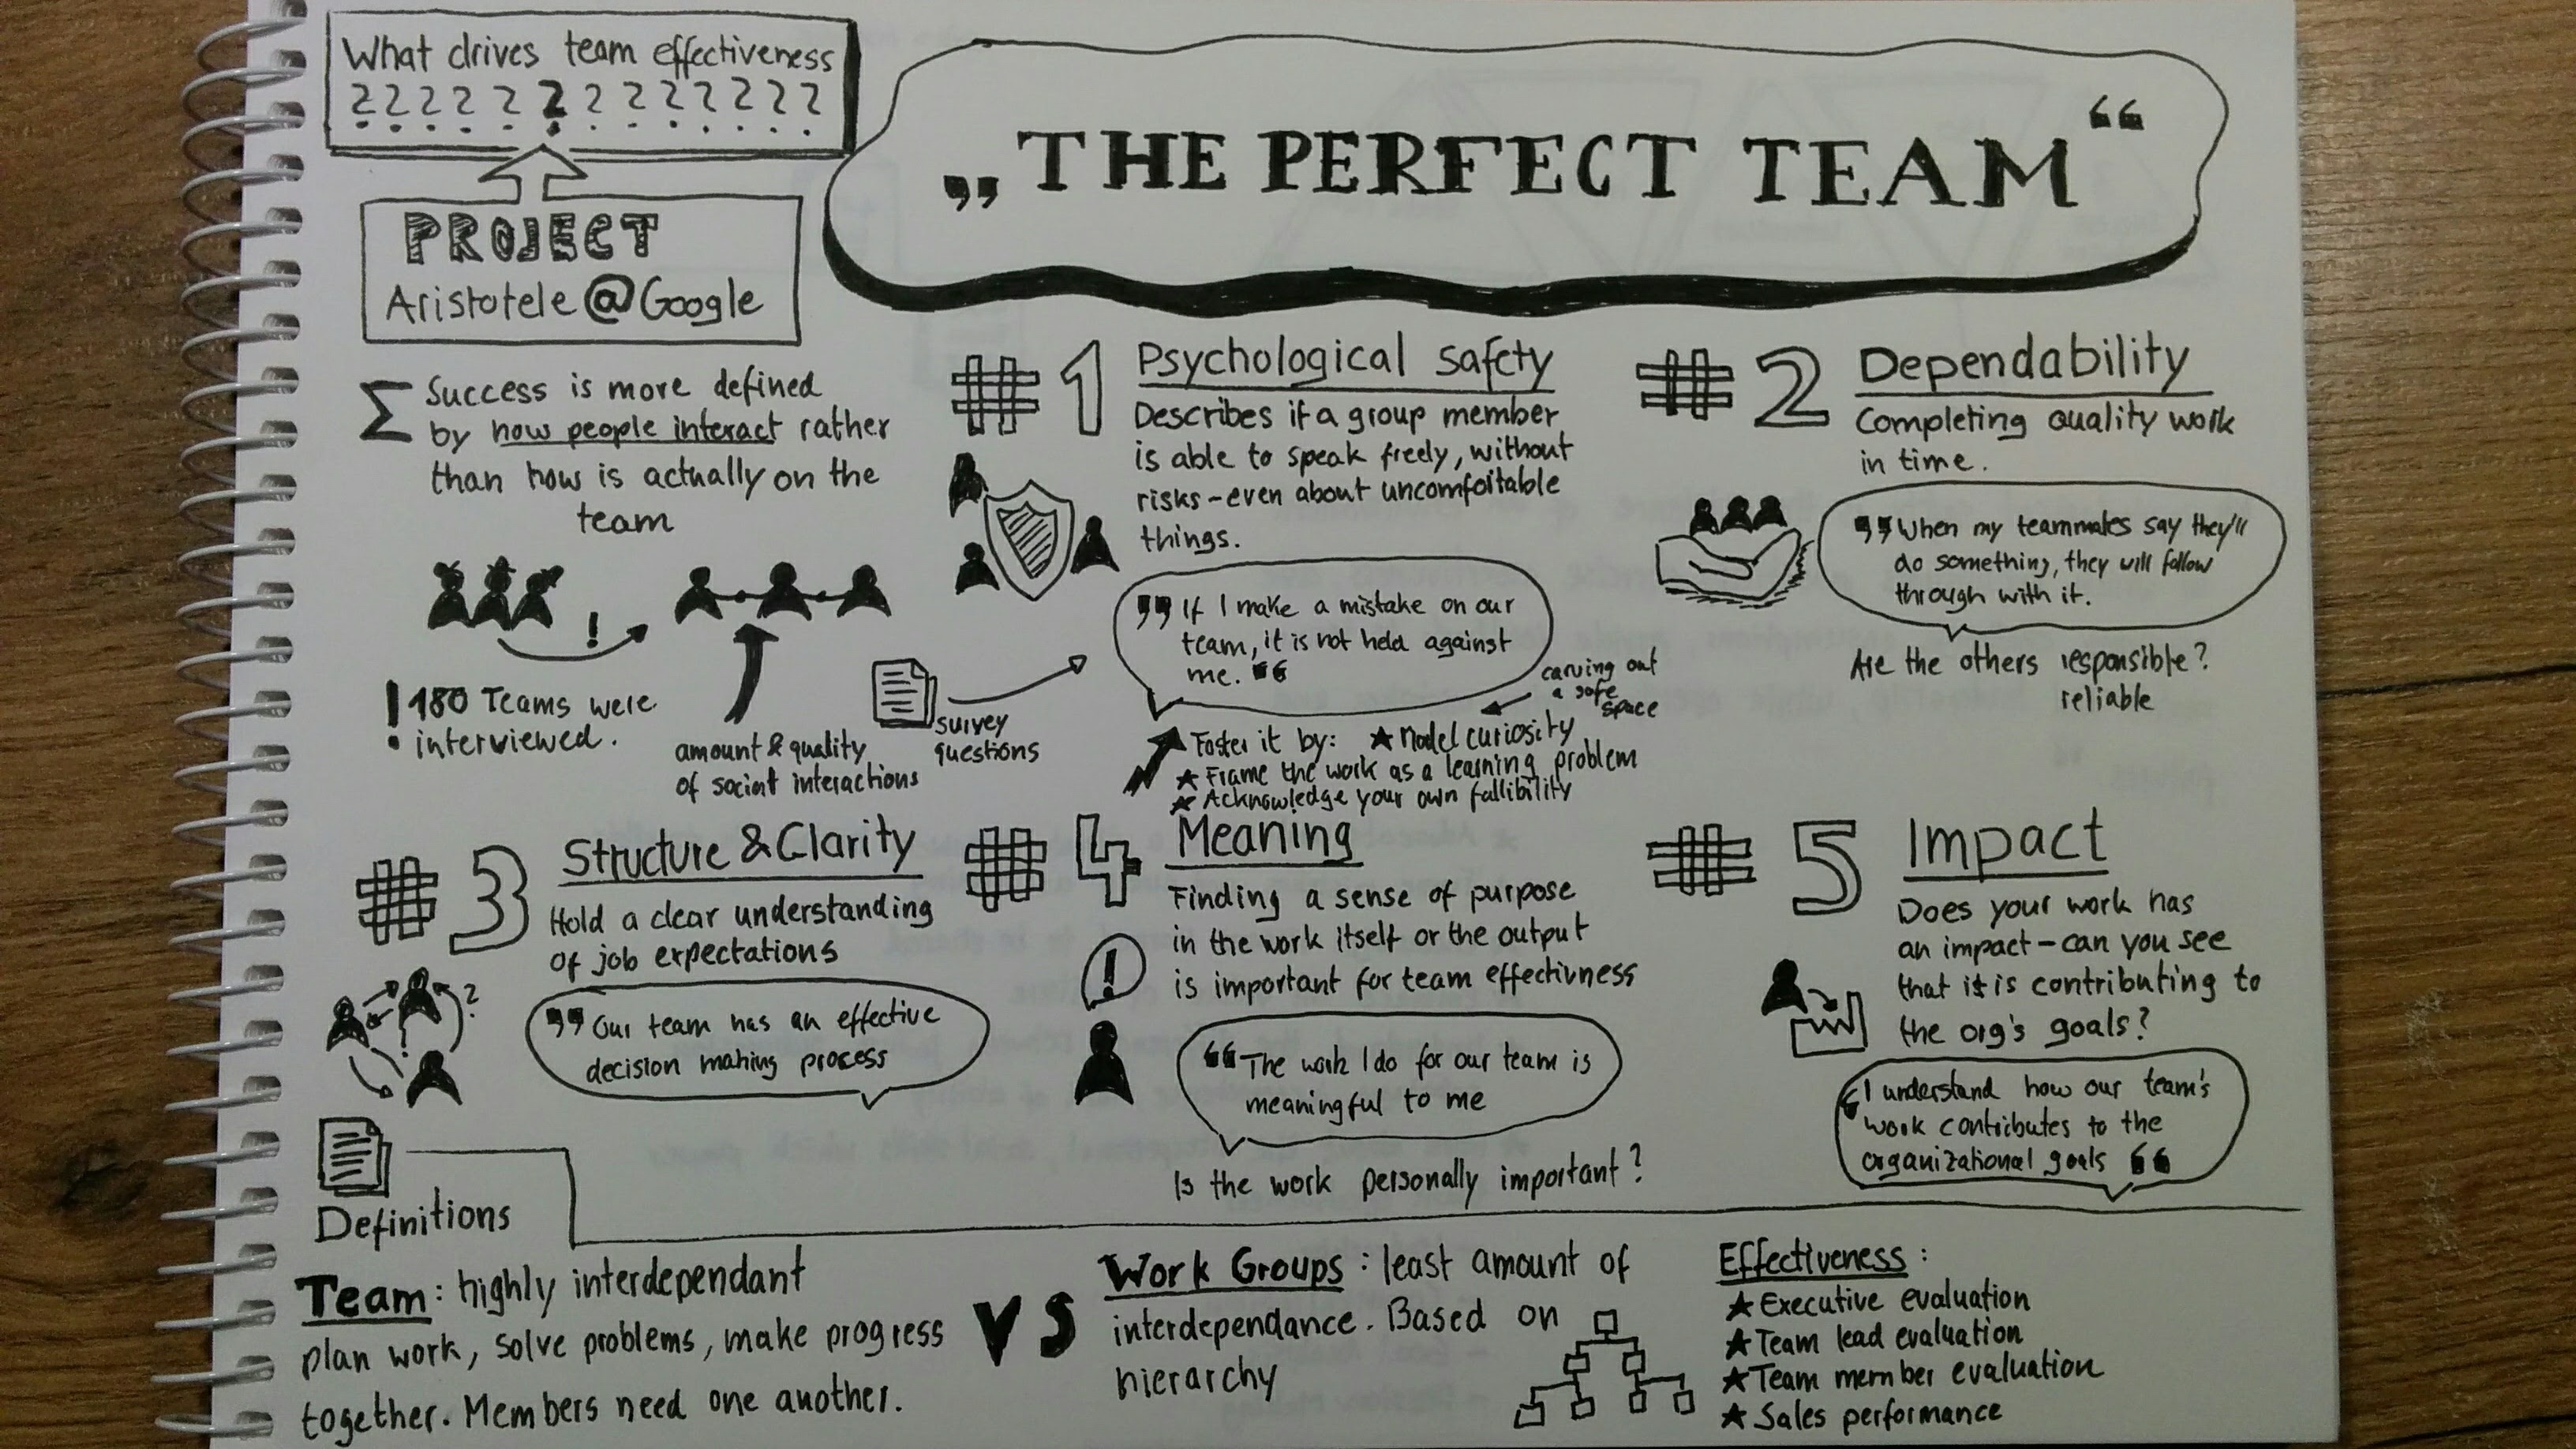 What drives team effectiveness
? ? ? ? ? ? ? ? ? ? ? ? ?
PROJECT
Aristotele @ Google
„THE PERFECT TEAM“
Σ Success is more defined
by how people interact rather
than how is actually on the
team
! 180 Teams were
interviewed.
amount & quality
of social interactions
survey
questions
#1 Psychological safety
Describes if a group member
is able to speak freely, without
risks - even about uncomfortable
things.
" If I make a mistake on our
team, it is not held against
me. "
carving out
a safe
space
Foster it by: ★ Model curiosity
★ Frame the work as a learning problem
★ Acknowledge your own fallibility
#2 Dependability
Completing quality work
in time.
" When my teammates say they'll
do something, they will follow
through with it.
Are the others responsible?
reliable
#3 Structure & Clarity
Hold a clear understanding
of job expectations
?
" Our team has an effective
decision making process
#4 Meaning
Finding a sense of purpose
in the work itself or the output
! is important for team effectivness
" The work I do for our team is
meaningful to me
Is the work personally important?
#5 Impact
Does your work has
an impact - can you see
that it is contributing to
the org's goals?
" I understand how our team's
work contributes to the
organizational goals "
Definitions
Team: highly interdependant
plan work, solve problems, make progress
together. Members need one another.
VS
Work Groups: least amount of
interdependance. Based on
hierarchy
Effectiveness:
★ Executive evaluation
★ Team lead evaluation
★ Team member evaluation
★ Sales performance